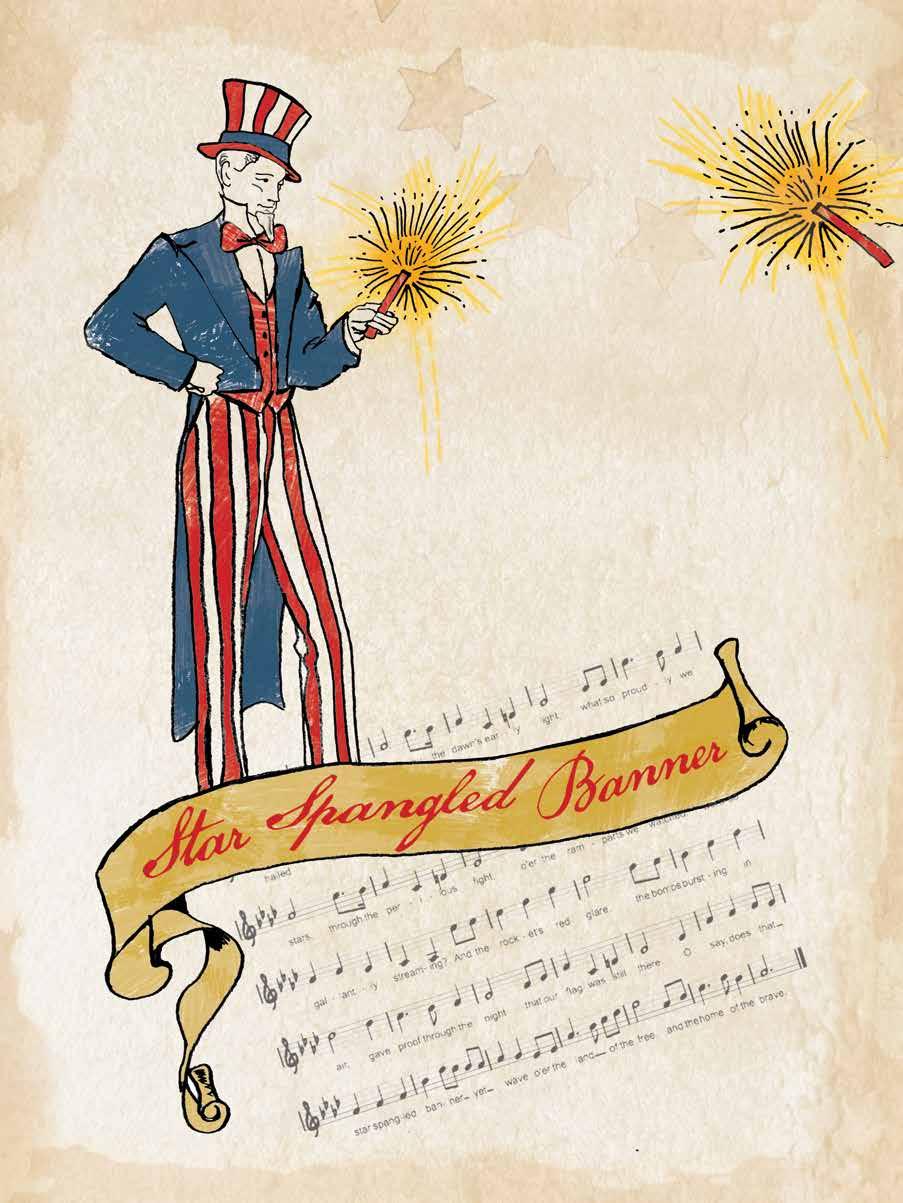 the dawn's ear - ly light what so proud - ly we
Star Spangled Banner
hailed o'er the ram - parts we watched
stars, through the per - i - lous fight.
gal - lant - ly stream-ing? And the rock - ets red glare, the bombs burst - ing in
air, gave proof through the night that our flag was still there. O say, does that_
star spang-led ban - ner_ yet_ wave o'er the land_ of the free and the home of the brave.